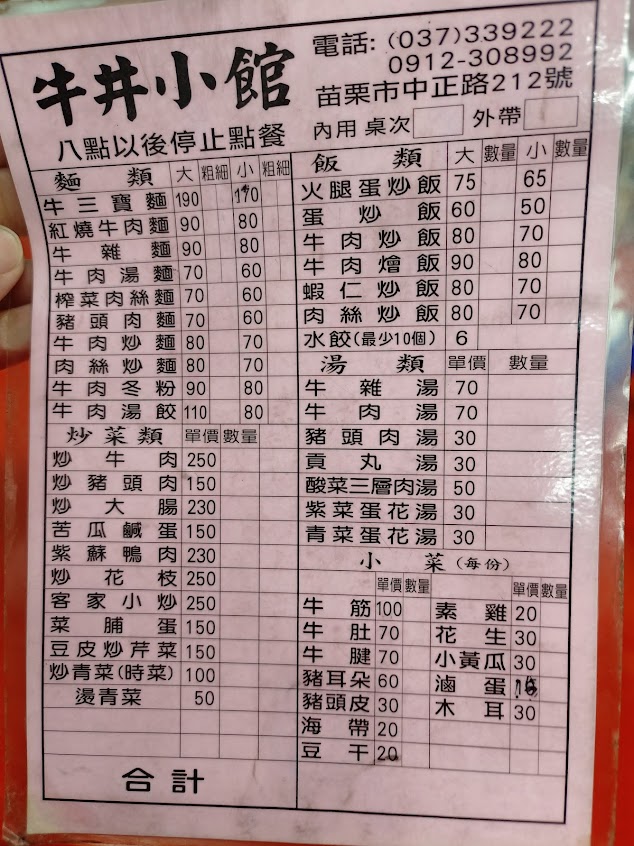 牛井小館
電話: (037)339222
0912-308992
苗栗市中正路212號
八點以後停止點餐
內用 桌次 外帶
麵類 大 粗細 小 粗細
牛三寶麵 190 170
紅燒牛肉麵 90 80
牛雜麵 90 80
牛肉湯麵 70 60
榨菜肉絲麵 70 60
豬頭肉麵 70 60
牛肉炒麵 80 70
肉絲炒麵 80 70
牛肉冬粉 90 80
牛肉湯餃 110 80
炒菜類 單價 數量
炒牛肉 250
炒豬頭肉 150
炒大腸 230
苦瓜鹹蛋 150
紫蘇鴨肉 230
炒花枝 250
客家小炒 250
菜脯蛋 150
豆皮炒芹菜 150
炒青菜(時菜) 100
燙青菜 50
合計
飯類 大 數量 小 數量
火腿蛋炒飯 75 65
蛋炒飯 60 50
牛肉炒飯 80 70
牛肉燴飯 90 80
蝦仁炒飯 80 70
肉絲炒飯 80 70
水餃(最少10個) 6
湯類 單價 數量
牛雜湯 70
牛肉湯 70
豬頭肉湯 30
貢丸湯 30
酸菜三層肉湯 50
紫菜蛋花湯 30
青菜蛋花湯 30
小菜(每份)
單價 數量 單價 數量
牛筋 100 素雞 20
牛肚 70 花生 30
牛腱 70 小黃瓜 30
豬耳朵 60 滷蛋
豬頭皮 30 木耳 30
海帶 20
豆干 20